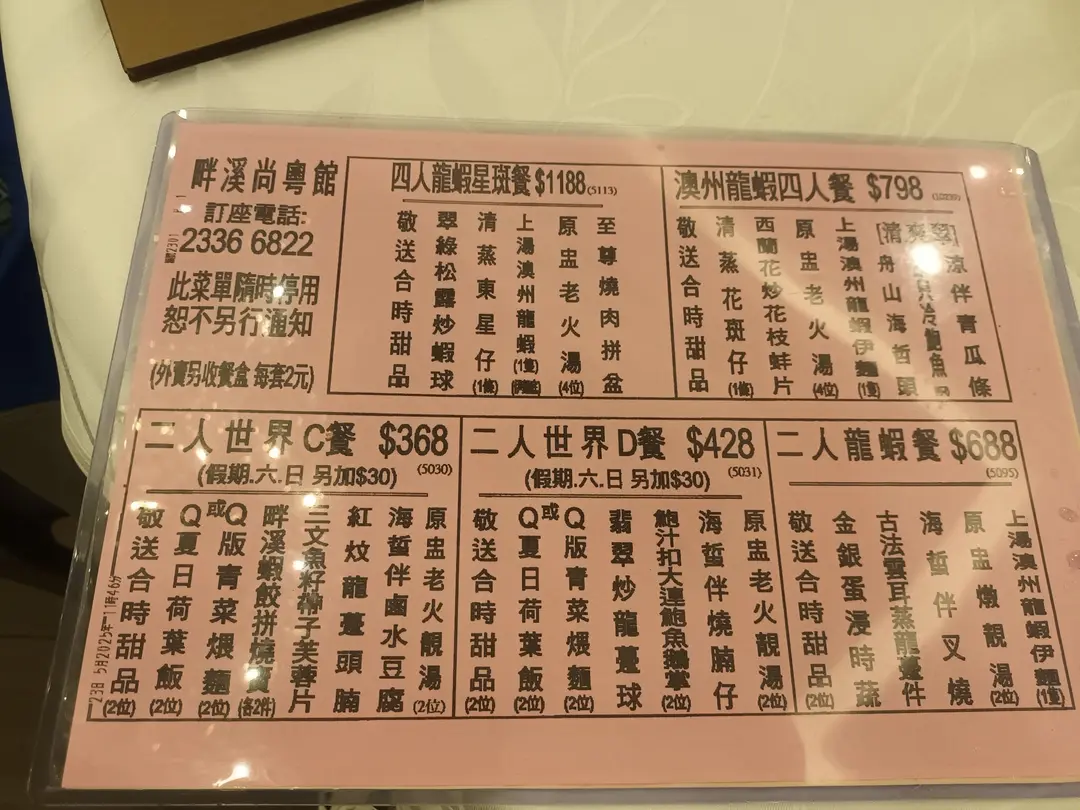 畔溪尚粵館
訂座電話:
2336 6822
此菜單隨時停用
恕不另行通知
(外賣另收餐盒 每套2元)
四人龍蝦星斑餐 $1188 (5113)
至尊燒肉拼盆
原盅老火湯(4位)
上湯澳州龍蝦(1隻)
清蒸東星仔(1條)
翠綠松露炒蝦球
敬送合時甜品
澳州龍蝦四人餐 $798
涼伴青瓜條
舟山海哲頭
上湯澳州龍蝦伊麵(1隻)
原盅老火湯(4位)
西蘭花炒花枝蚌片
清蒸花斑仔(1條)
敬送合時甜品
二人世界C餐 $368
(假期.六.日 另加$30) (5030)
原盅老火靚湯(2位)
海蜇伴鹵水豆腐
紅炆龍躉頭腩
三文魚籽帶子芙蓉片
畔溪蝦餃拼燒賣(各2件)
Q版青菜煨麵(2位)
或
Q夏日荷葉飯(2位)
敬送合時甜品(2位)
二人世界D餐 $428
(假期.六.日 另加$30) (5031)
原盅老火靚湯(2位)
海蜇伴燒腩仔
鮑汁扣大連鮑魚鵝掌
翡翠炒龍躉球
Q版青菜煨麵(2位)
或
Q夏日荷葉飯(2位)
敬送合時甜品(2位)
二人龍蝦餐 $688
(5095)
上湯澳州龍蝦伊麵(1隻)
原盅燉靚湯(2位)
海蜇伴叉燒
古法雲耳蒸龍躉件
金銀蛋浸時蔬
敬送合時甜品(2位)
23日 5月2025年 11時46分